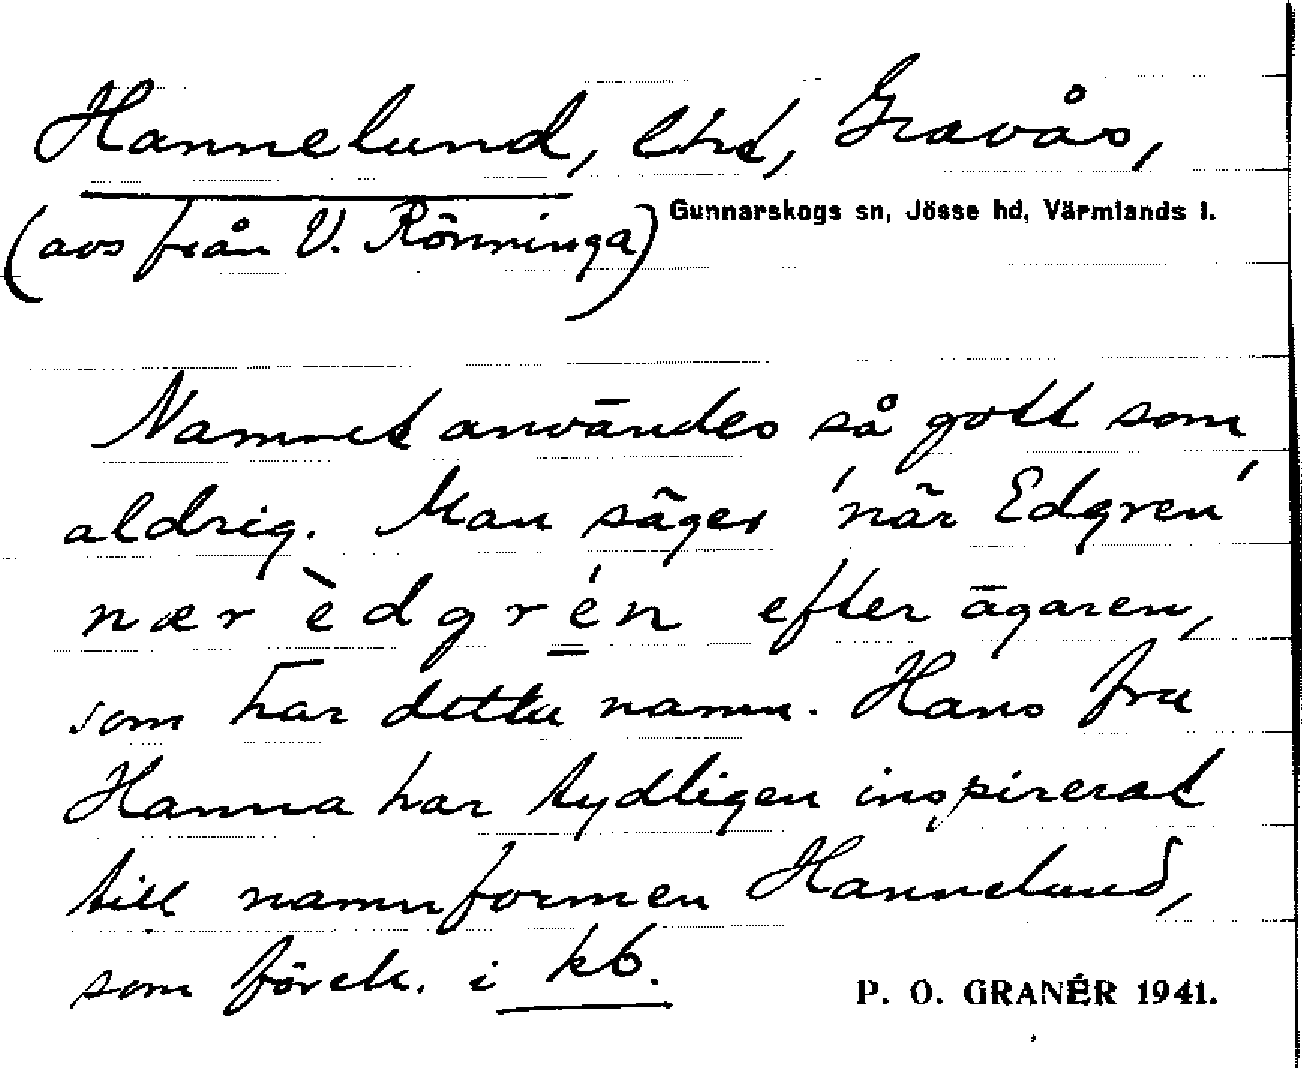 Hannelund, lhd, Gravås,
Gunnarskogs sn, Jösse hd, Värmlands l.
(avs från V. Rönninga)
Namnet användes så gott som
aldrig. Man säger 'när Edgren'
nær èdgrén efter ägaren,
som har detta namn. Hans fru
Hanna har tydligen inspirerat
till namnformen Hannelund,
som förek. i kb.
P. O. GRANÉR 1941.